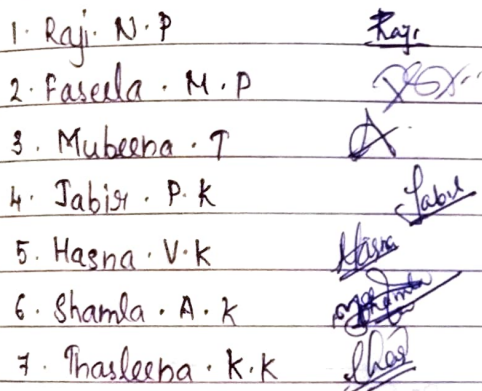 1. Raji. N. P Raji
2. Faseela. M. P
3. Mubeena. T
4. Jabir. P. K Jabir
5. Hasna. V. K Hasna
6. Shamla. A. K Shamla
7. Thasleena. K. K